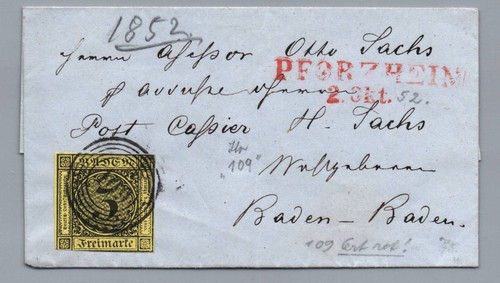 1852.
Herrn Assessor Otto Sachs
PFORZHEIM
2. Okt. 52.
Post Cassier H. Sachs
"109"
Wohlgeboren
BADEN
3
Freimarke
Baden-Baden.
109 Ort rot!